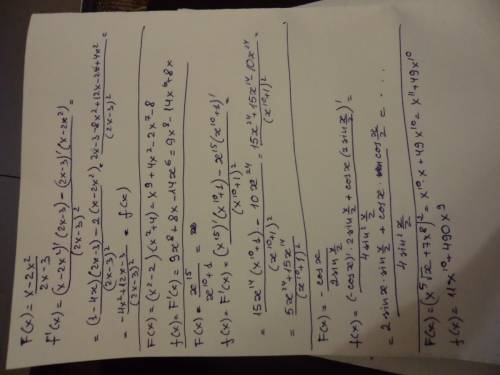 F(x) = x-2x² / 2x-3
F'(x) = (x-2x²)'(2x-3) - (2x-3)'(x-2x²) / (2x-3)² =
= (1-4x)(2x-3) - 2(x-2x²) / (2x-3)² =
-4x²+12x-3 / (2x-3)² = f(x)
F(x) = (x²-2)(x²+4) = x⁹+4x²-2x⁷-8
f(x) = F'(x) = 9x⁸+8x-14x⁶ = 9x⁸-14x⁶+8x
F(x) = x¹⁵ / x¹⁰+1 =
f(x) = F'(x) = (x¹⁵)'(x¹⁰+1) - x¹⁵(x¹⁰+1)' / (x¹⁰+1)² =
= 15x¹⁴(x¹⁰+1) - 10x²⁴ / (x¹⁰+1)² = 15x²⁴+15x¹⁴-10x²⁴ / (x¹⁰+1)² =
= 5x²⁴+15x¹⁴ / (x¹⁰+1)²
F(x) = -cosx / 2sin x/2
f(x) = (-cosx)'·2sin x/2 + cosx(2sin x/2)' / 4sin² x/2 =
= 2sinx·sin x/2 + cosx·cos x/2 / 4sin² x/2 = ...
F(x) = (x⁵√x+7x⁵)² = x¹⁰·x+49x¹⁰ = x¹¹+49x¹⁰
f(x) = 11x¹⁰+490x⁹